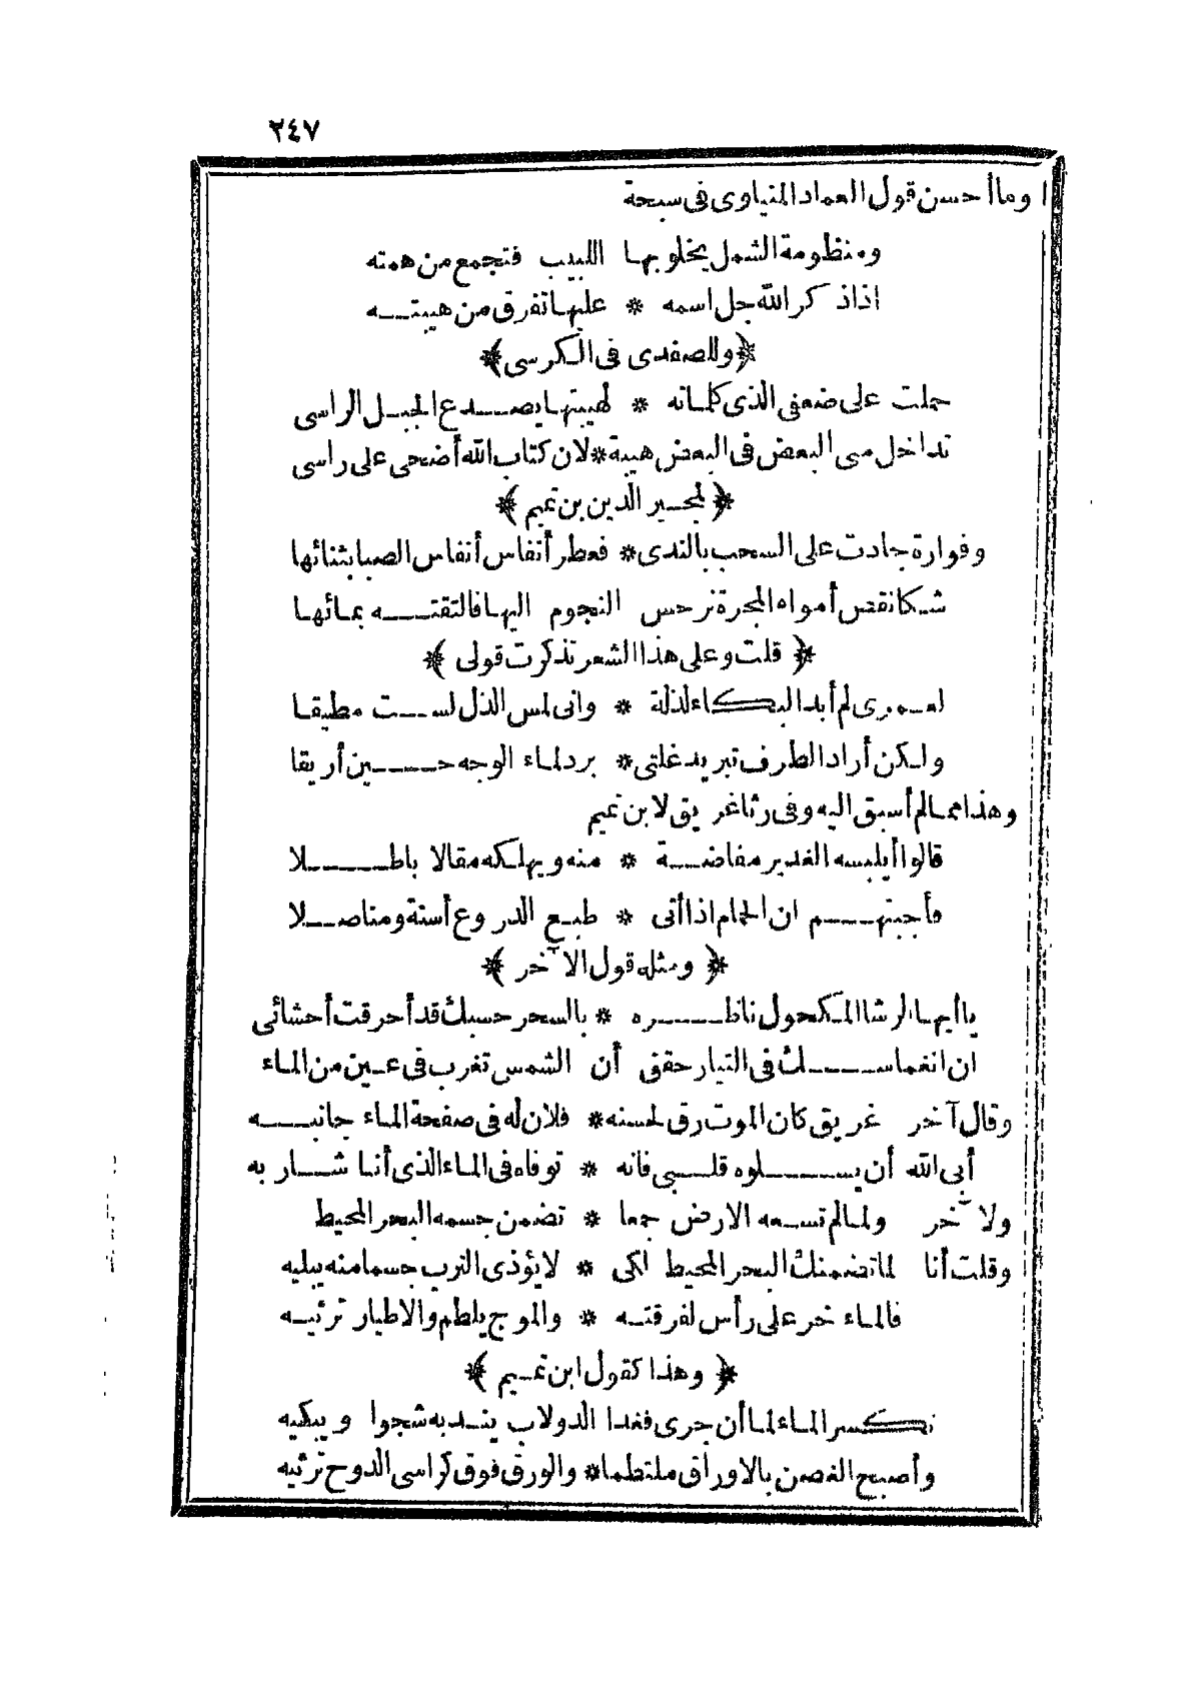 ٢٤٧
وما أحسن قول العماد المنياوى فى سبحة
ومنظومة الشمل يخلو بها اللبيب فتجمع من همته
اذا ذكر الله جل اسمه * عليها تفرق من هيبتـه
﴿وللصفدى فى الكرسى﴾
حملت على ضعفى الذى كلماته * لهيبتها يصدع الجبل الراسى
تداخل منى البعض فى البعض هيبة * لان كتاب الله أضحى على راسى
﴿لمجير الدين بن تميم﴾
وفوارة جادت على السحب بالندى * فعطر أنفاس أنفاس الصبا بثنائها
شكا نقص أمواه المجرة نرجس النجوم اليها فالتقته بمائها
﴿قلت وعلى هذا الشعر تذكرت قولى﴾
لعمرى لم أبد البكاء لذلة * وانى لمس الذل لست مطيقا
ولكن أراد الطرف تبريد غلتى * برد لماء الوجه حين أريقا
وهذا مما لم أسبق اليه وفى رثا غريق لابن تميم
قالوا أيلبسه الغدير مفاضة * منه ويهلكه مقالا باطلا
فأجبتهم ان الحمام اذا أتى * طبع الدروع أسنة ومناصلا
﴿ومثله قول الآخر﴾
يا أيها الرشا المكحول ناظره * بالسحر حسبك قد أحرقت أحشائى
ان انغماسك فى التيار حقق أن الشمس تغرب فى عين من الماء
وقال آخر غريق كان الموت رق لحسنه * فلان له فى صفحة الماء جانبه
أبى الله أن يسلوه قلبى فانه * توفاه فى الماء الذى أنا شاربه
ولآخر ولما لم تسعه الارض جمعا * تضمن جسمه البحر المحيط
وقلت أنا لما تضمنك البحر المحيط لكى * لا يؤذى الترب جسما منه يبليه
فالماء خر على رأس لفرقته * والموج يلطم والاطيار ترثيه
﴿وهذا كقول ابن تميم﴾
تكسر الماء لما أن جرى فغدا الدولاب يندبه شجوا ويبكيه
وأصبح الغصن بالاوراق ملتطما * والورق فوق كراسى الدوح ترثيه